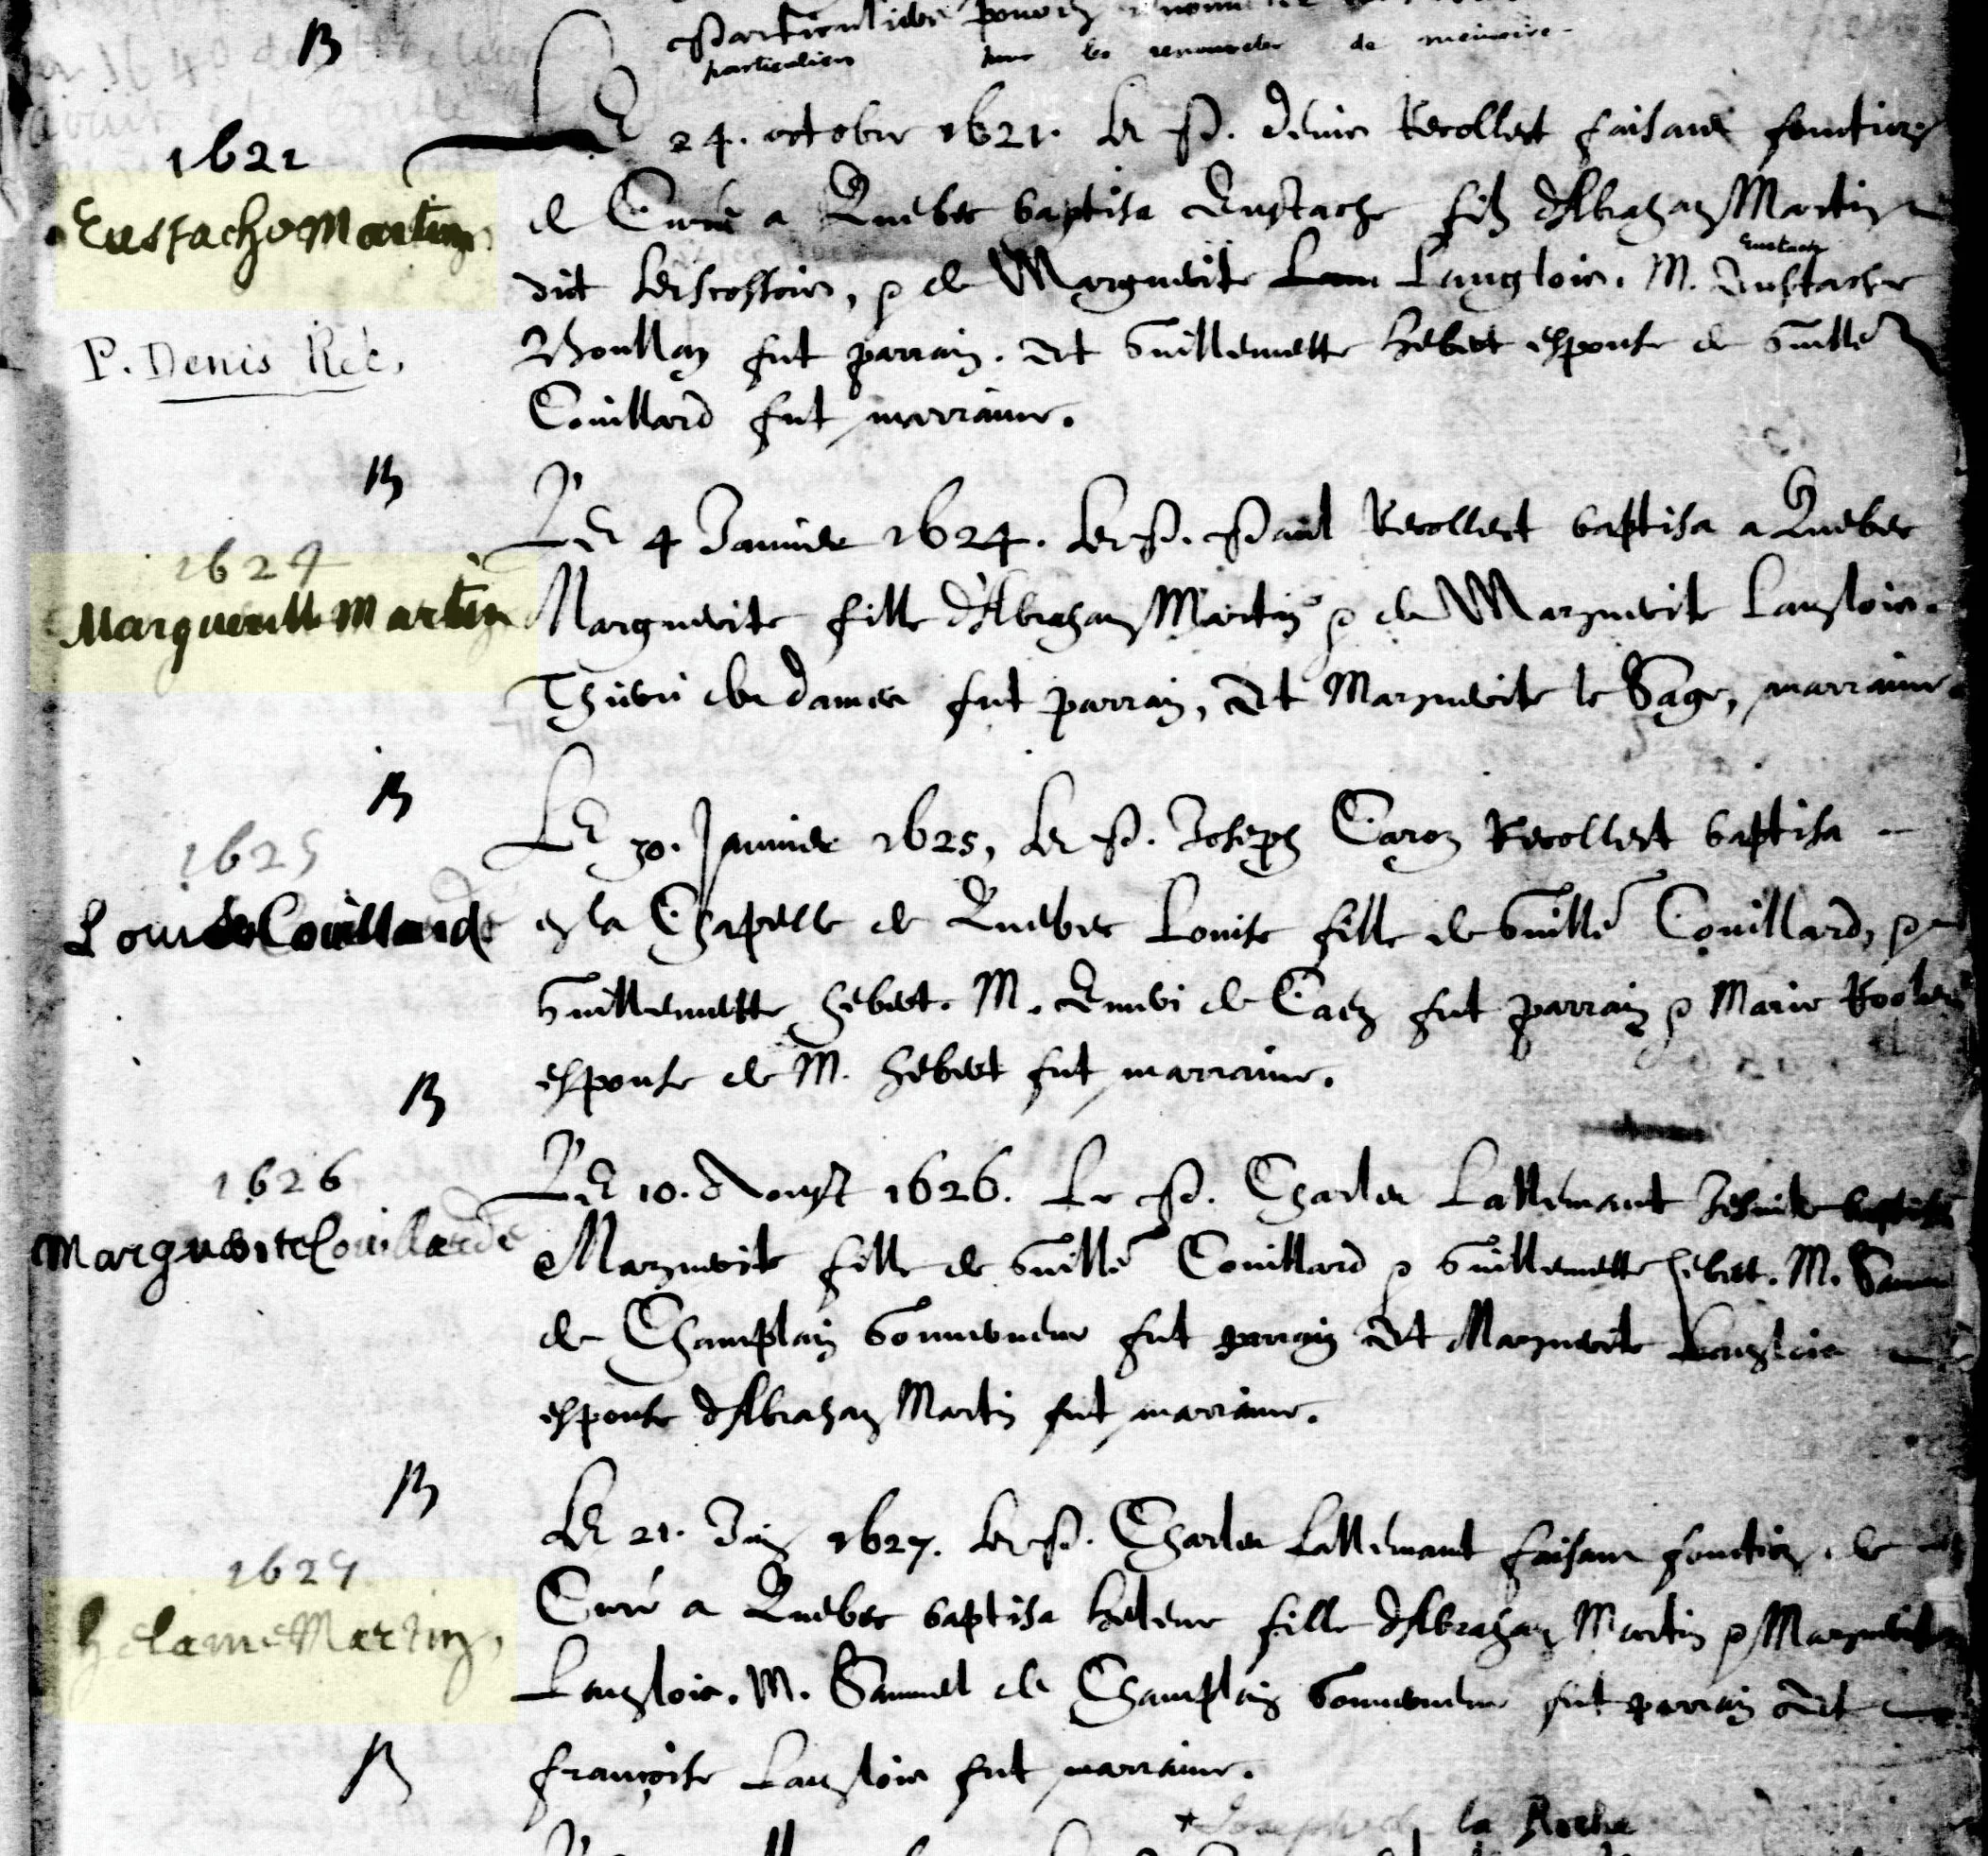 B
particulier
particuliere pour les renouveler de memoire.
1621
Eustache Martin
P. Denis Rec.
LE 24. octobre 1621. Le P. Denis Recollect faisant fonction
de Curé a Quebec baptisa Eustache filz d'Abraham Martin
Eustach
dict Lescossois, & de Marguerite Langlois. M. Eustache
Boullay fut parrain. Et Guillemette hebert espouse de Guille
Couillard fut marraine.
B
1624
Margueritte Martin
LE 4 Januier 1624. Le P. Paul Recollect baptisa a Quebec
Marguerite fille d'Abraham Martin & de Marguerite Langlois.
Thieri desdames fut parrain, Et Marguerite le Sage, marraine
B
1625
Louise Couillarde
LE 30. Januier 1625, Le P. Joseph Caron Recollect baptisa
en la Chapelle de Quebec Louise fille de Guille Couillard, &
Guillemette hebert. M. Emeri de Caen fut parrain & Marie Rolet
espouse de M. hebert fut marraine.
B
1626
Marguerite Couillarde
LE 10. d'Aoust 1626. Le P. Charles Lallemant Jesuite baptisa
Marguerite fille de Guille Couillard & Guillemette hebert. M. Samuel
de Champlain Gouuerneur fut parrain Et Marguerite Langlois
espouse d'Abraham Martin fut marraine.
B
1627
helaine Martin,
LE 21. Juin 1627. Le P. Charles Lallemant faisant fonction de
Curé a Quebec baptisa helene fille d'Abraham Martin & Marguerite
Langlois. M. Samuel de Champlain Gouuerneur fut parrain Et
françoise Langlois fut marraine.
B
la Roche